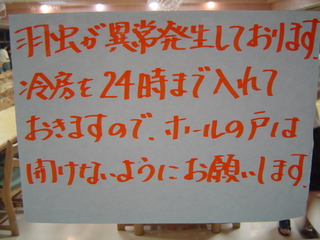 羽虫が異常発生しております
冷房を24時まで入れて
おきますので、ホールの戸は
開けないようにお願いします.